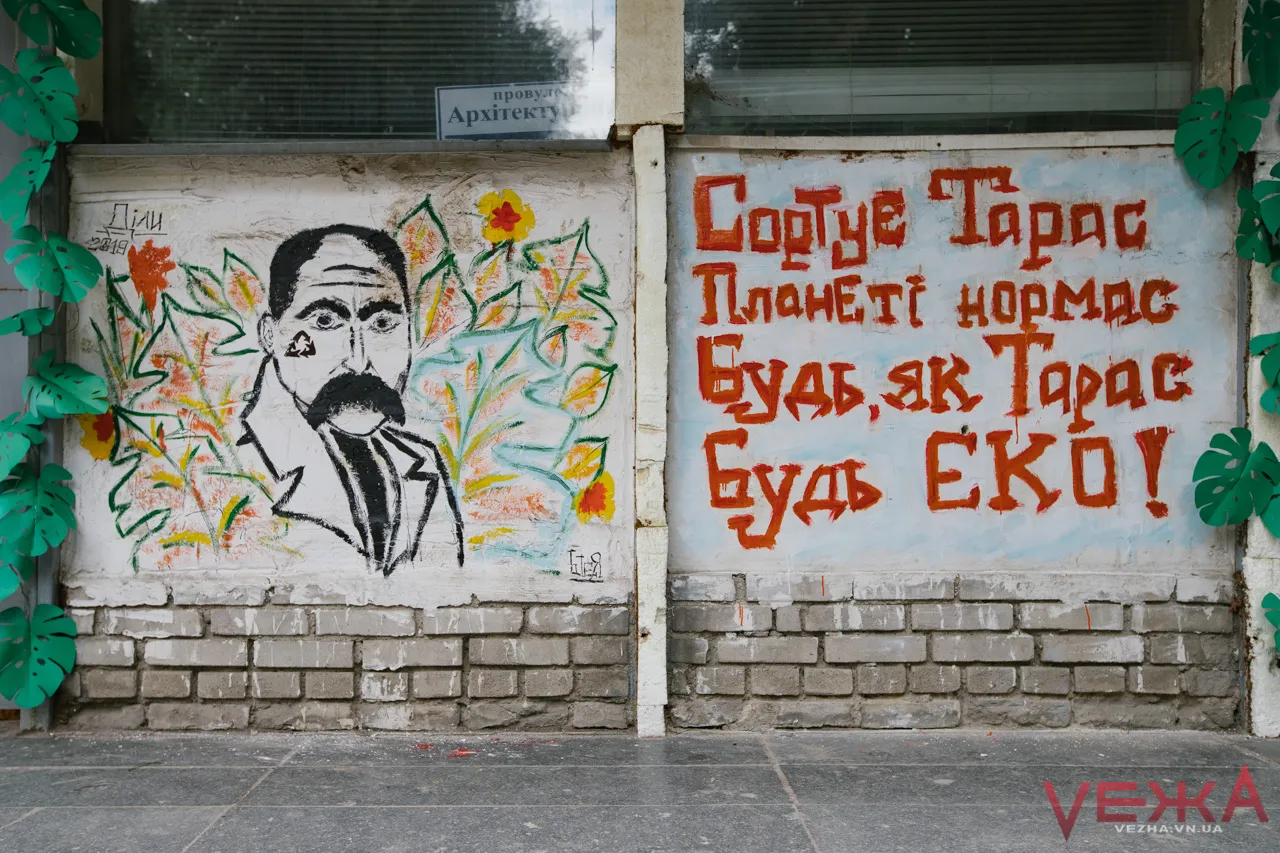 провуло
Архітекту
Діли
2019
Сортує Тарас
Планеті нормас
Будь, як Тарас
Будь ЕКО!
VEЖА
VEZHA.VN.UA